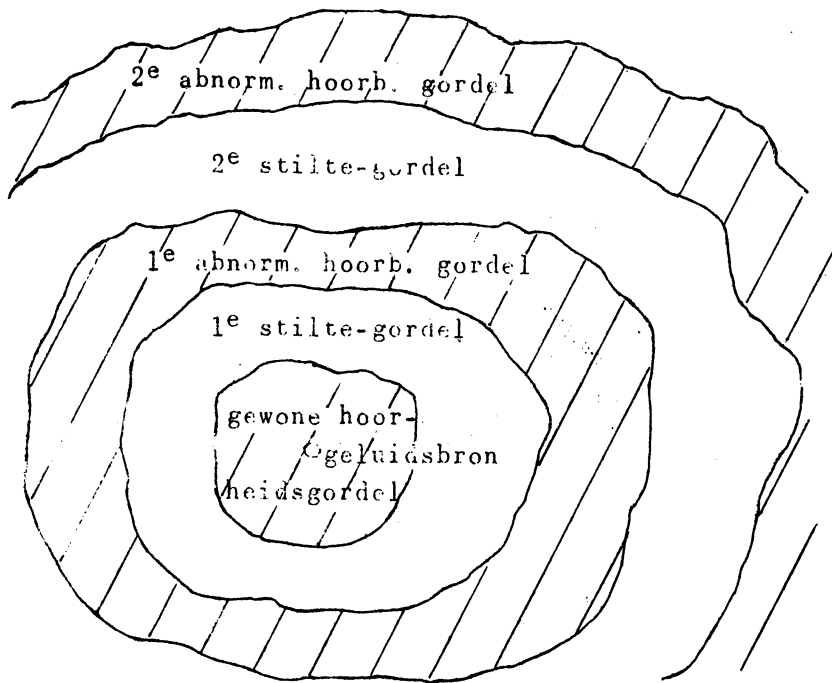 2e abnorm. hoorb. gordel
2e stilte-gordel
1e abnorm. hoorb. gordel
1e stilte-gordel
gewone hoor-
geluidsbron
heidsgordel